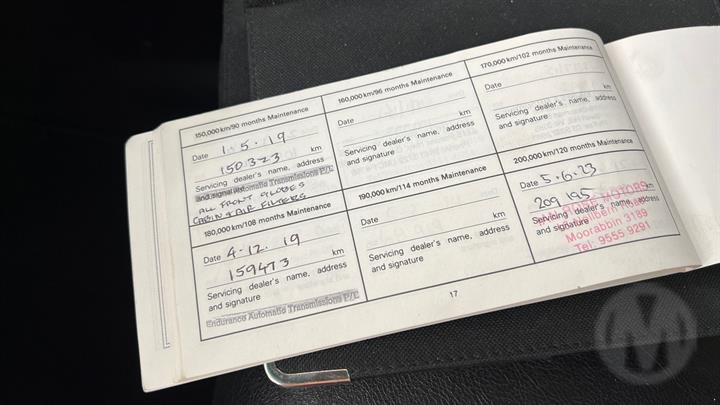 150,000 km/90 months Maintenance
Date 1.5.19
150323 km
Servicing dealer's name, address
and signature
Automatic Transmissions P/L
ALL FRONT GLOBES
CABIN & AIR FILTERS
160,000 km/96 months Maintenance
Date
km
Servicing dealer's name, address
and signature
170,000 km/102 months Maintenance
Date
km
Servicing dealer's name, address
and signature
180,000 km/108 months Maintenance
Date 4.12.19
159473 km
Servicing dealer's name, address
and signature
Endurance Automatic Transmissions P/L
190,000 km/114 months Maintenance
Date
km
Servicing dealer's name, address
and signature
200,000 km/120 months Maintenance
Date 5.6.23
209 195 km
Servicing dealer's name, address
and signature
MOTORS
Moorabbin 3189
Tel: 9555 9291
17
M